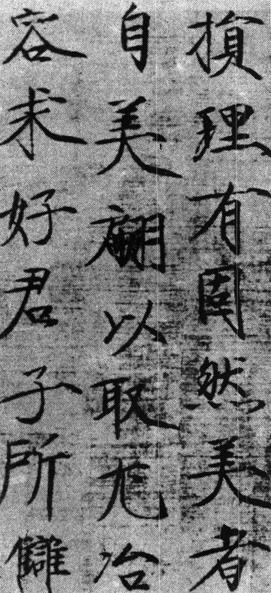 損理有固然美者
自美翩以取尤冶
容求好君子所讎